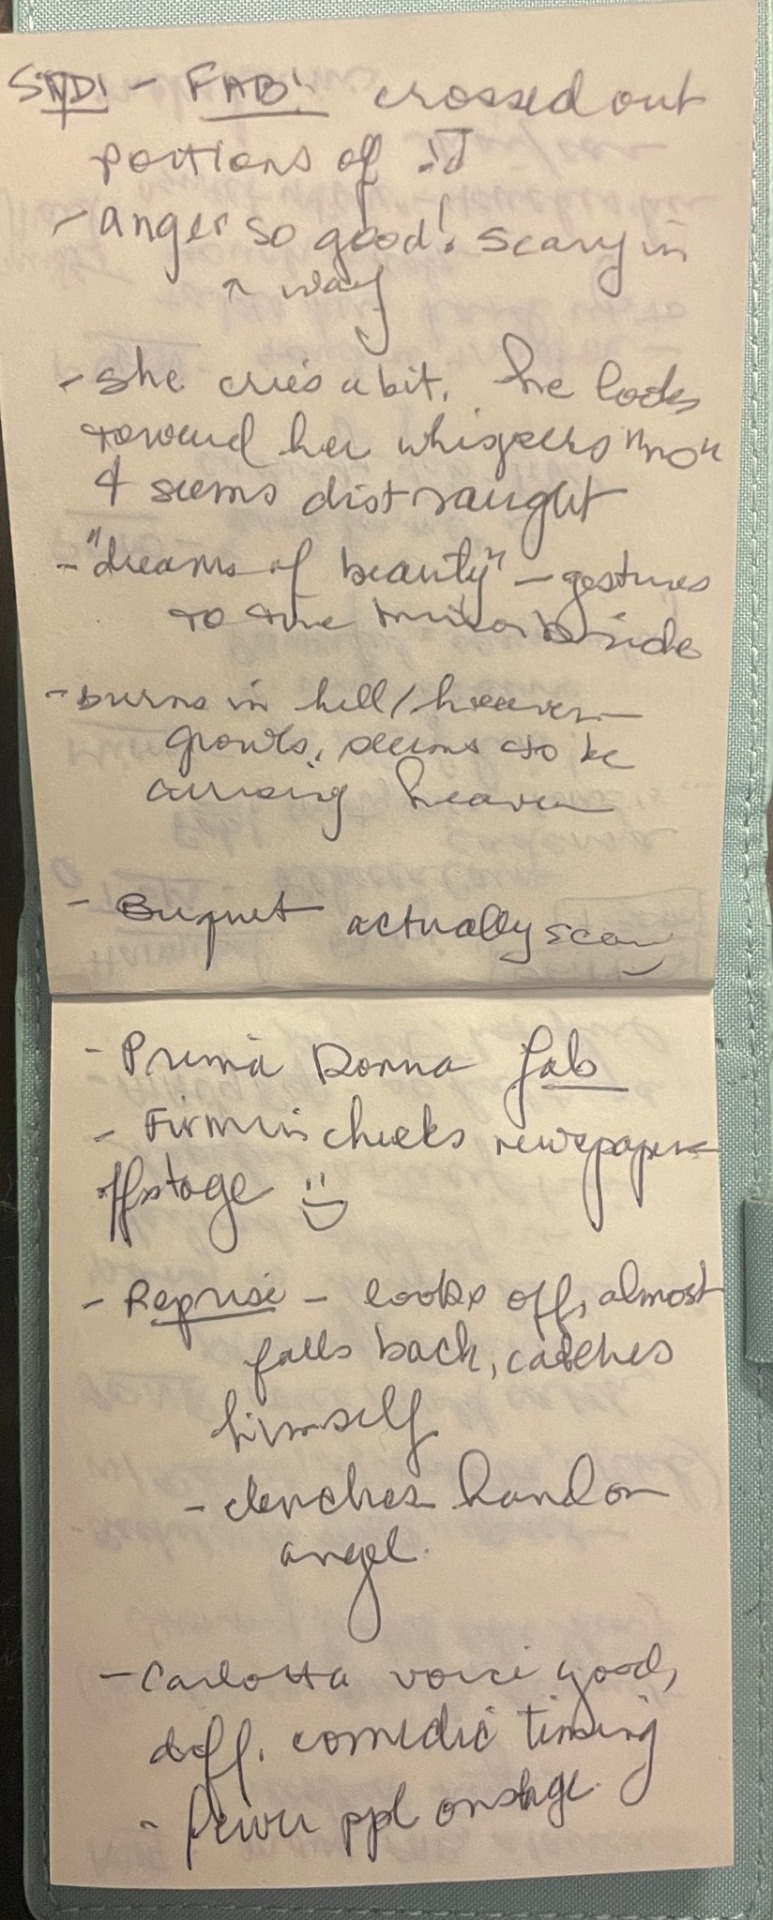 STYDI - FAB! crossed out
portions of it
- anger so good! scary in
a way
- she cries a bit, he looks
toward her whispers "no"
& seems distraught
- "dreams of beauty" - gestures
to the mirror bride
- burns in hell/heaven -
growls, seems to be
cursing heaven
- Buquet actually scary
- Prima Donna fab
- Firmin checks newspaper
offstage :)
- Reprise - looks off, almost
falls back, catches
himself
- clenches hand on
angel.
- Carlotta voice good,
diff. comedic timing
- fewer ppl onstage.